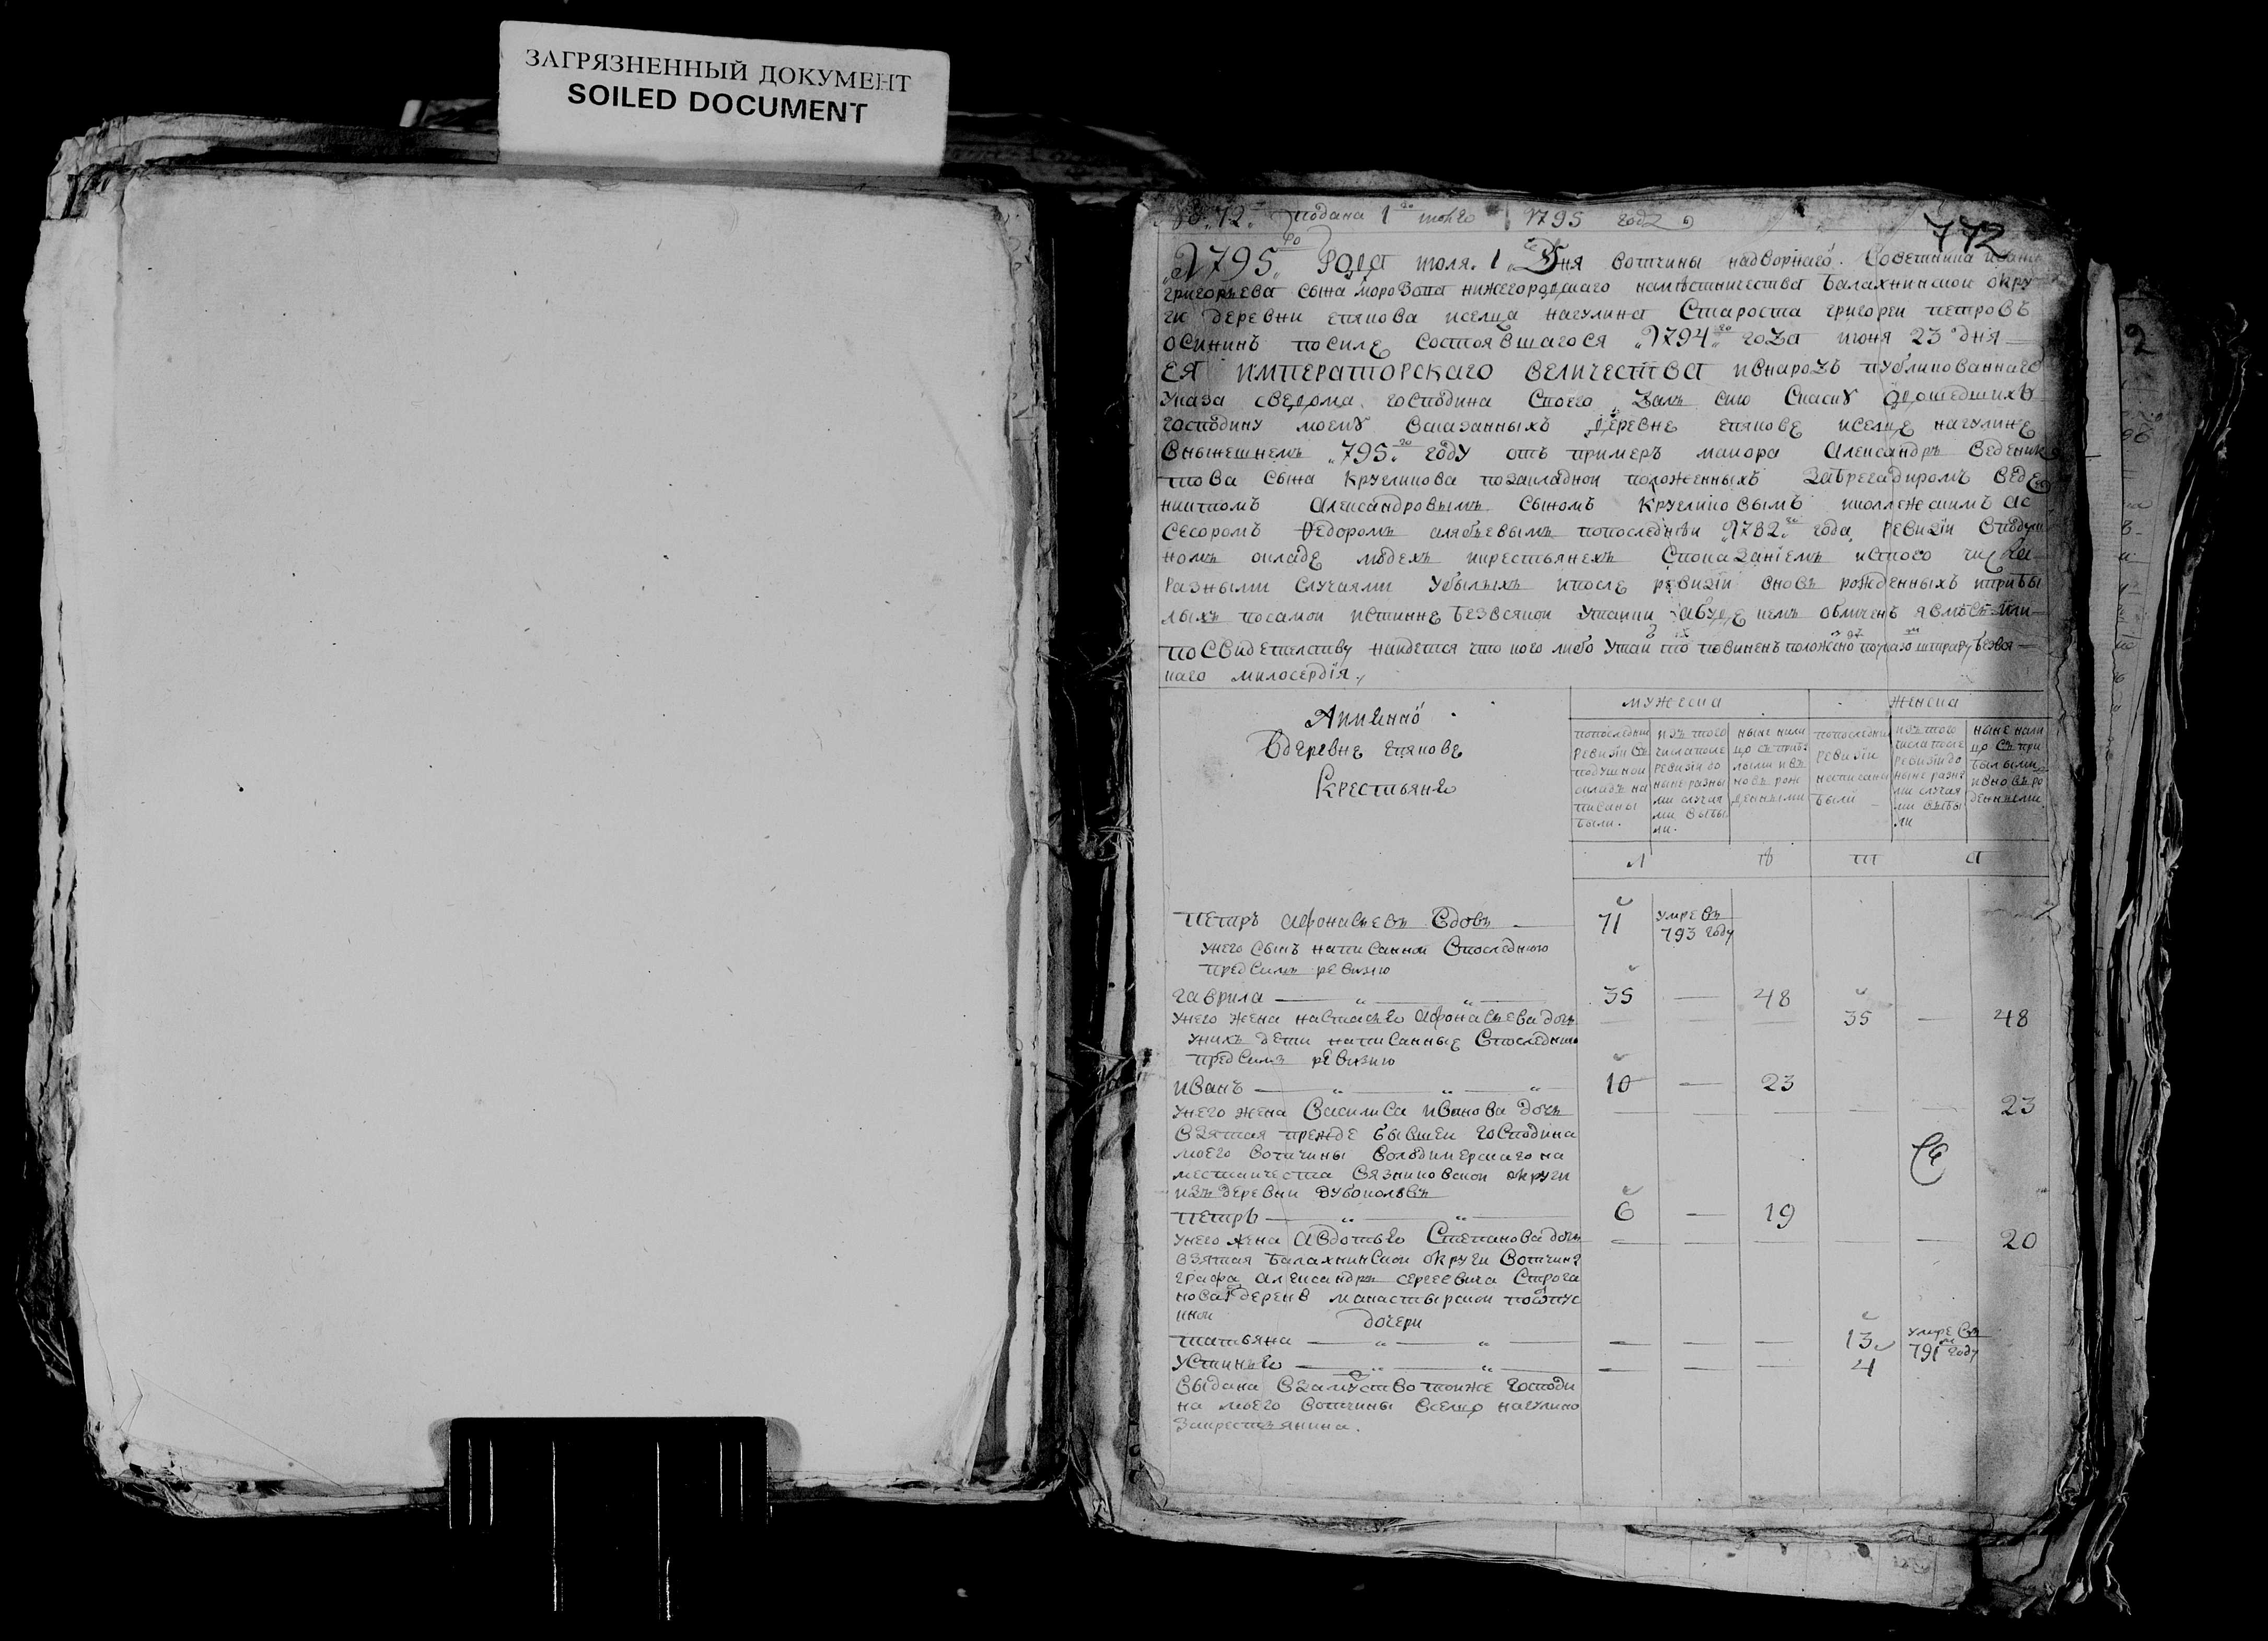 ЗАГРЯЗНЕННЫЙ ДОКУМЕНТ
SOILED DOCUMENT
подана 1 го июля 1795 году
772
1795 го Года июля 1 Дня вотчины надворнаго Советника ивана
григорьева сына морозова нижегородскаго наместничества балахнинской окру
ги деревни епяхова иселца нагулина Староста григореи петровъ
осининъ посиле состоявшагося 1794 го года июня 23 дня
ЕЯ ИМПЕРАТОРСКАГО ВЕЛИЧЕСТВА ивнародъ публикованнаго
указа сведома господина своего далъ сию скаску дошедшихъ
господину моему всказанныхъ деревне епякове иселце нагулине
внынешнемъ 795 го году отъ примеръ маиора Александръ веденик
това сына круглинова позакладной положенныхъ забрегадиромъ веде
ниитомъ Александровымъ сыномъ кругликовымъ иколлежскимъ ас
сесоромъ Федоромъ алябьевымъ попоследнеи 1782 го года ревизии вподуш
номъ окладе людехъ икрестьянехъ споказаниемъ истого числа
разными случаями убылыхъ ипосле ревизии вновь рожденныхъ иприбы
лыхъ посамои истинне безвсякои утаики абуде кемъ обличенъ явлюсь или
посвидетелству наидется что кого либо утаи то повиненъ положено поуказо штрафу безвся
каго милосердия
Аимянно
вдеревне епякове
Крестьяне
мужеска
женска
попоследни ревизии въ подушной окладъ написаны были.
изъ того числа после ревизии до ныне разны ми случая ми выбы ли.
ныне нали цо съ прибы лыми и въ новь рож денными
попоследни ревизии написаны были
изъ того числа после ревизии до ныне разны ми случая ми выбы ли
ныне нали цо съ при былыми ивновь ро жденными
л ѣ т а
петръ афонасьевъ вдовъ 71 умре въ 793 году
унего сынъ написанной впоследнюю
предсимъ ревизию
гаврила 35 — 48
унего жена настасья афонасьева дочь 35 — 48
унихъ дети написанные впоследнюю
предсимъ ревизию
иванъ 10 — 23
унего жена василиса иванова дочь 23
взятая прежде бывшеи господина
моего вотчины володимерскаго на
местничества вязниковскои округи
изъ деревни дубоколевъ
петръ 6 — 19
унего жена авдотья степанова дочь 20
взятая балахнинскои округи вотчины
графа александръ сергеевича строга
нова деревн манастырскои поотпус
кнои
дочери
татьяна 13 умре въ 791 м году
устинья 4
выдана взамуство тоиже господи
на моего вотчины вселцо нагулино
закрестьянина.